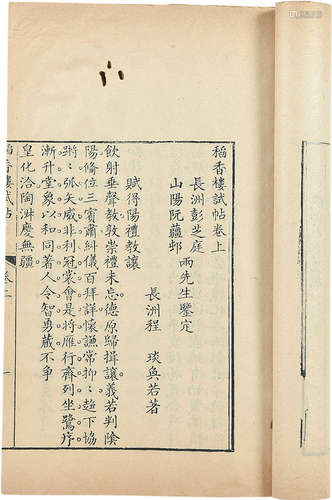 稻香樓試帖卷上
長洲彭芝庭
山陽阮蕺邨
兩先生鑒定
長洲程琰奐若著
賦得陽禮教讓
飲射垂聲教敦崇禮未忘德原歸揖讓義若判陰
陽脩位三賓肅糾儀百拜詳懷謙常抑抑趨下協
蹡蹡弧矢威非利冠裳會是將雁行齊列坐鷺序
漸升堂象以和同著人令智勇藏不爭
皇化洽陶淑慶無疆
稻香樓試帖
卷上
一